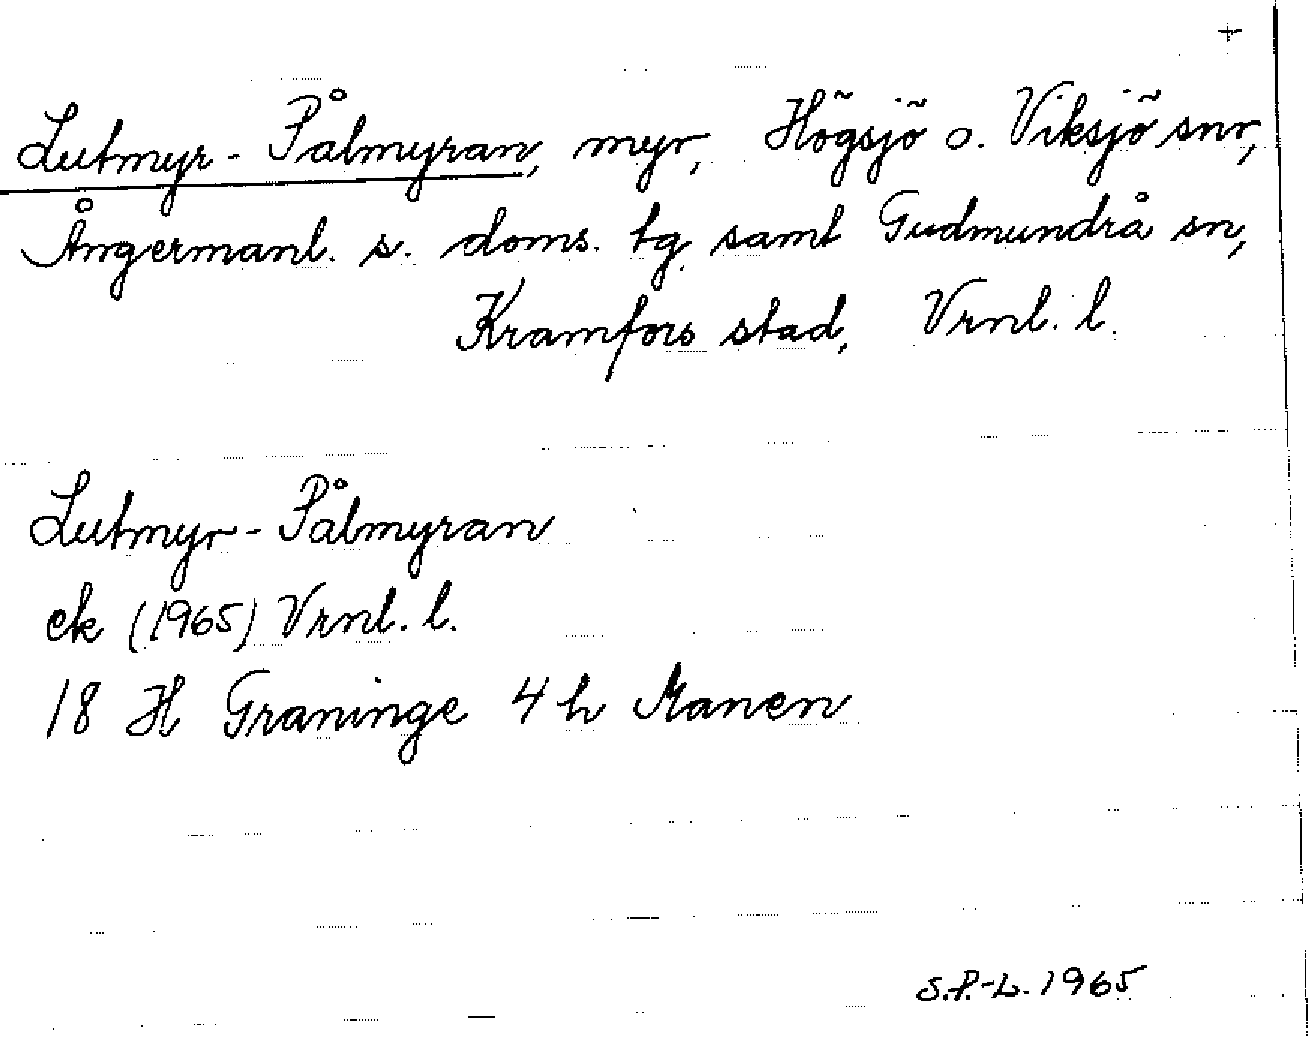 +
Lutmyr-Pålmyran, myr, Högsjö o. Viksjö snr,
Ångermanl. s. doms. tg. samt Gudmundrå sn,
Kramfors stad, Vrnl. l.
Lutmyr-Pålmyran
ek (1965) Vrnl. l.
18 H Graninge 4 h Manen
S.P.-L. 1965